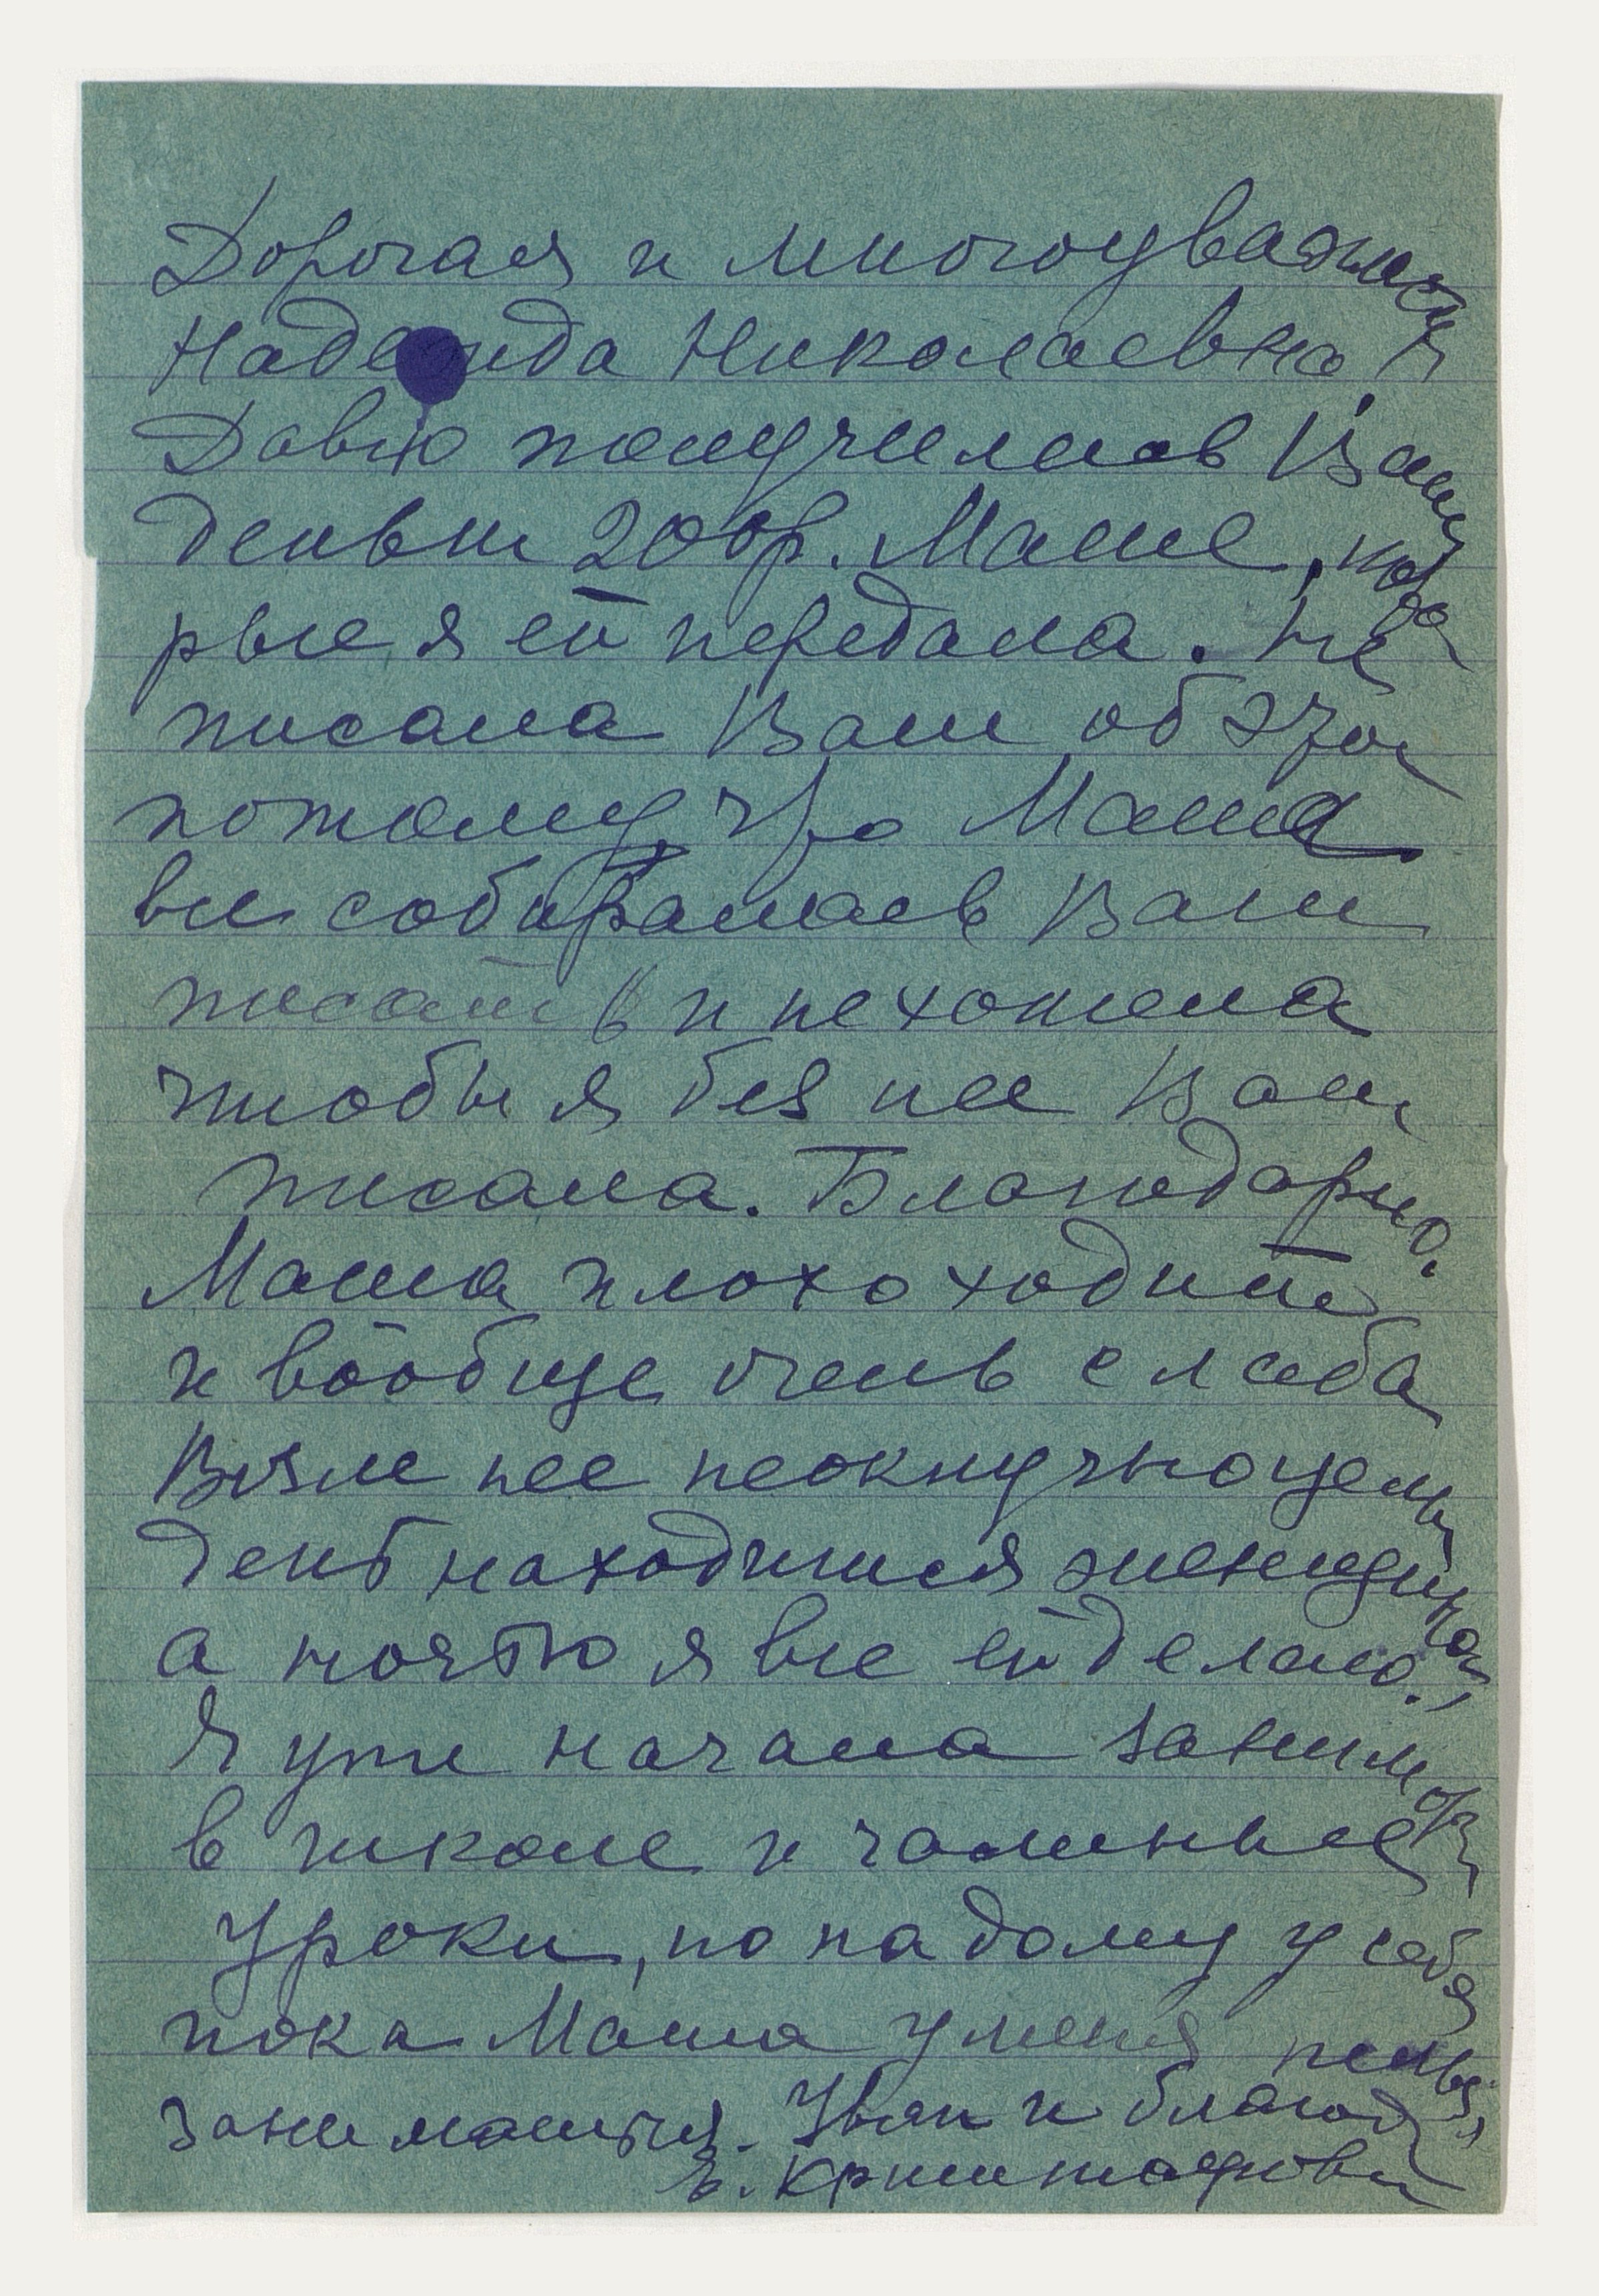 Дорогая и многоуважаемая
Надежда Николаевна!
Давно получилась Ваши
деньги 200р. Маше, кото
рые я ей передала. Не
писала Вам об этом
потому что Маша
все собиралась Вам
писать и не хотела
чтобы я без нее Вам
писала. Благодарю.
Маша плохо ходит
и вообще очень слаба
Возле нее неокнучно целый
день находится женщина,
а ночью я все ей делаю.
Я уже начала заниматься
в школе и частные
уроки, но на дому у себя
пока Маша у меня нельзя
заниматься. Уваж и благод
Е. Криштафович